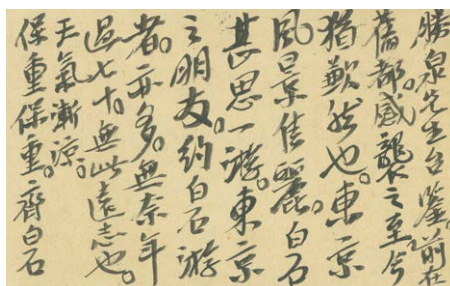 勝泉先生台鑒。前在
舊都。之至今
猶歉然也。東京
風景佳麗。白石
甚思一游。東京
之朋友。約白石游
者。亦多。無奈年
過七十。無此遠志也。
天氣漸涼。
保重保重。齊白石